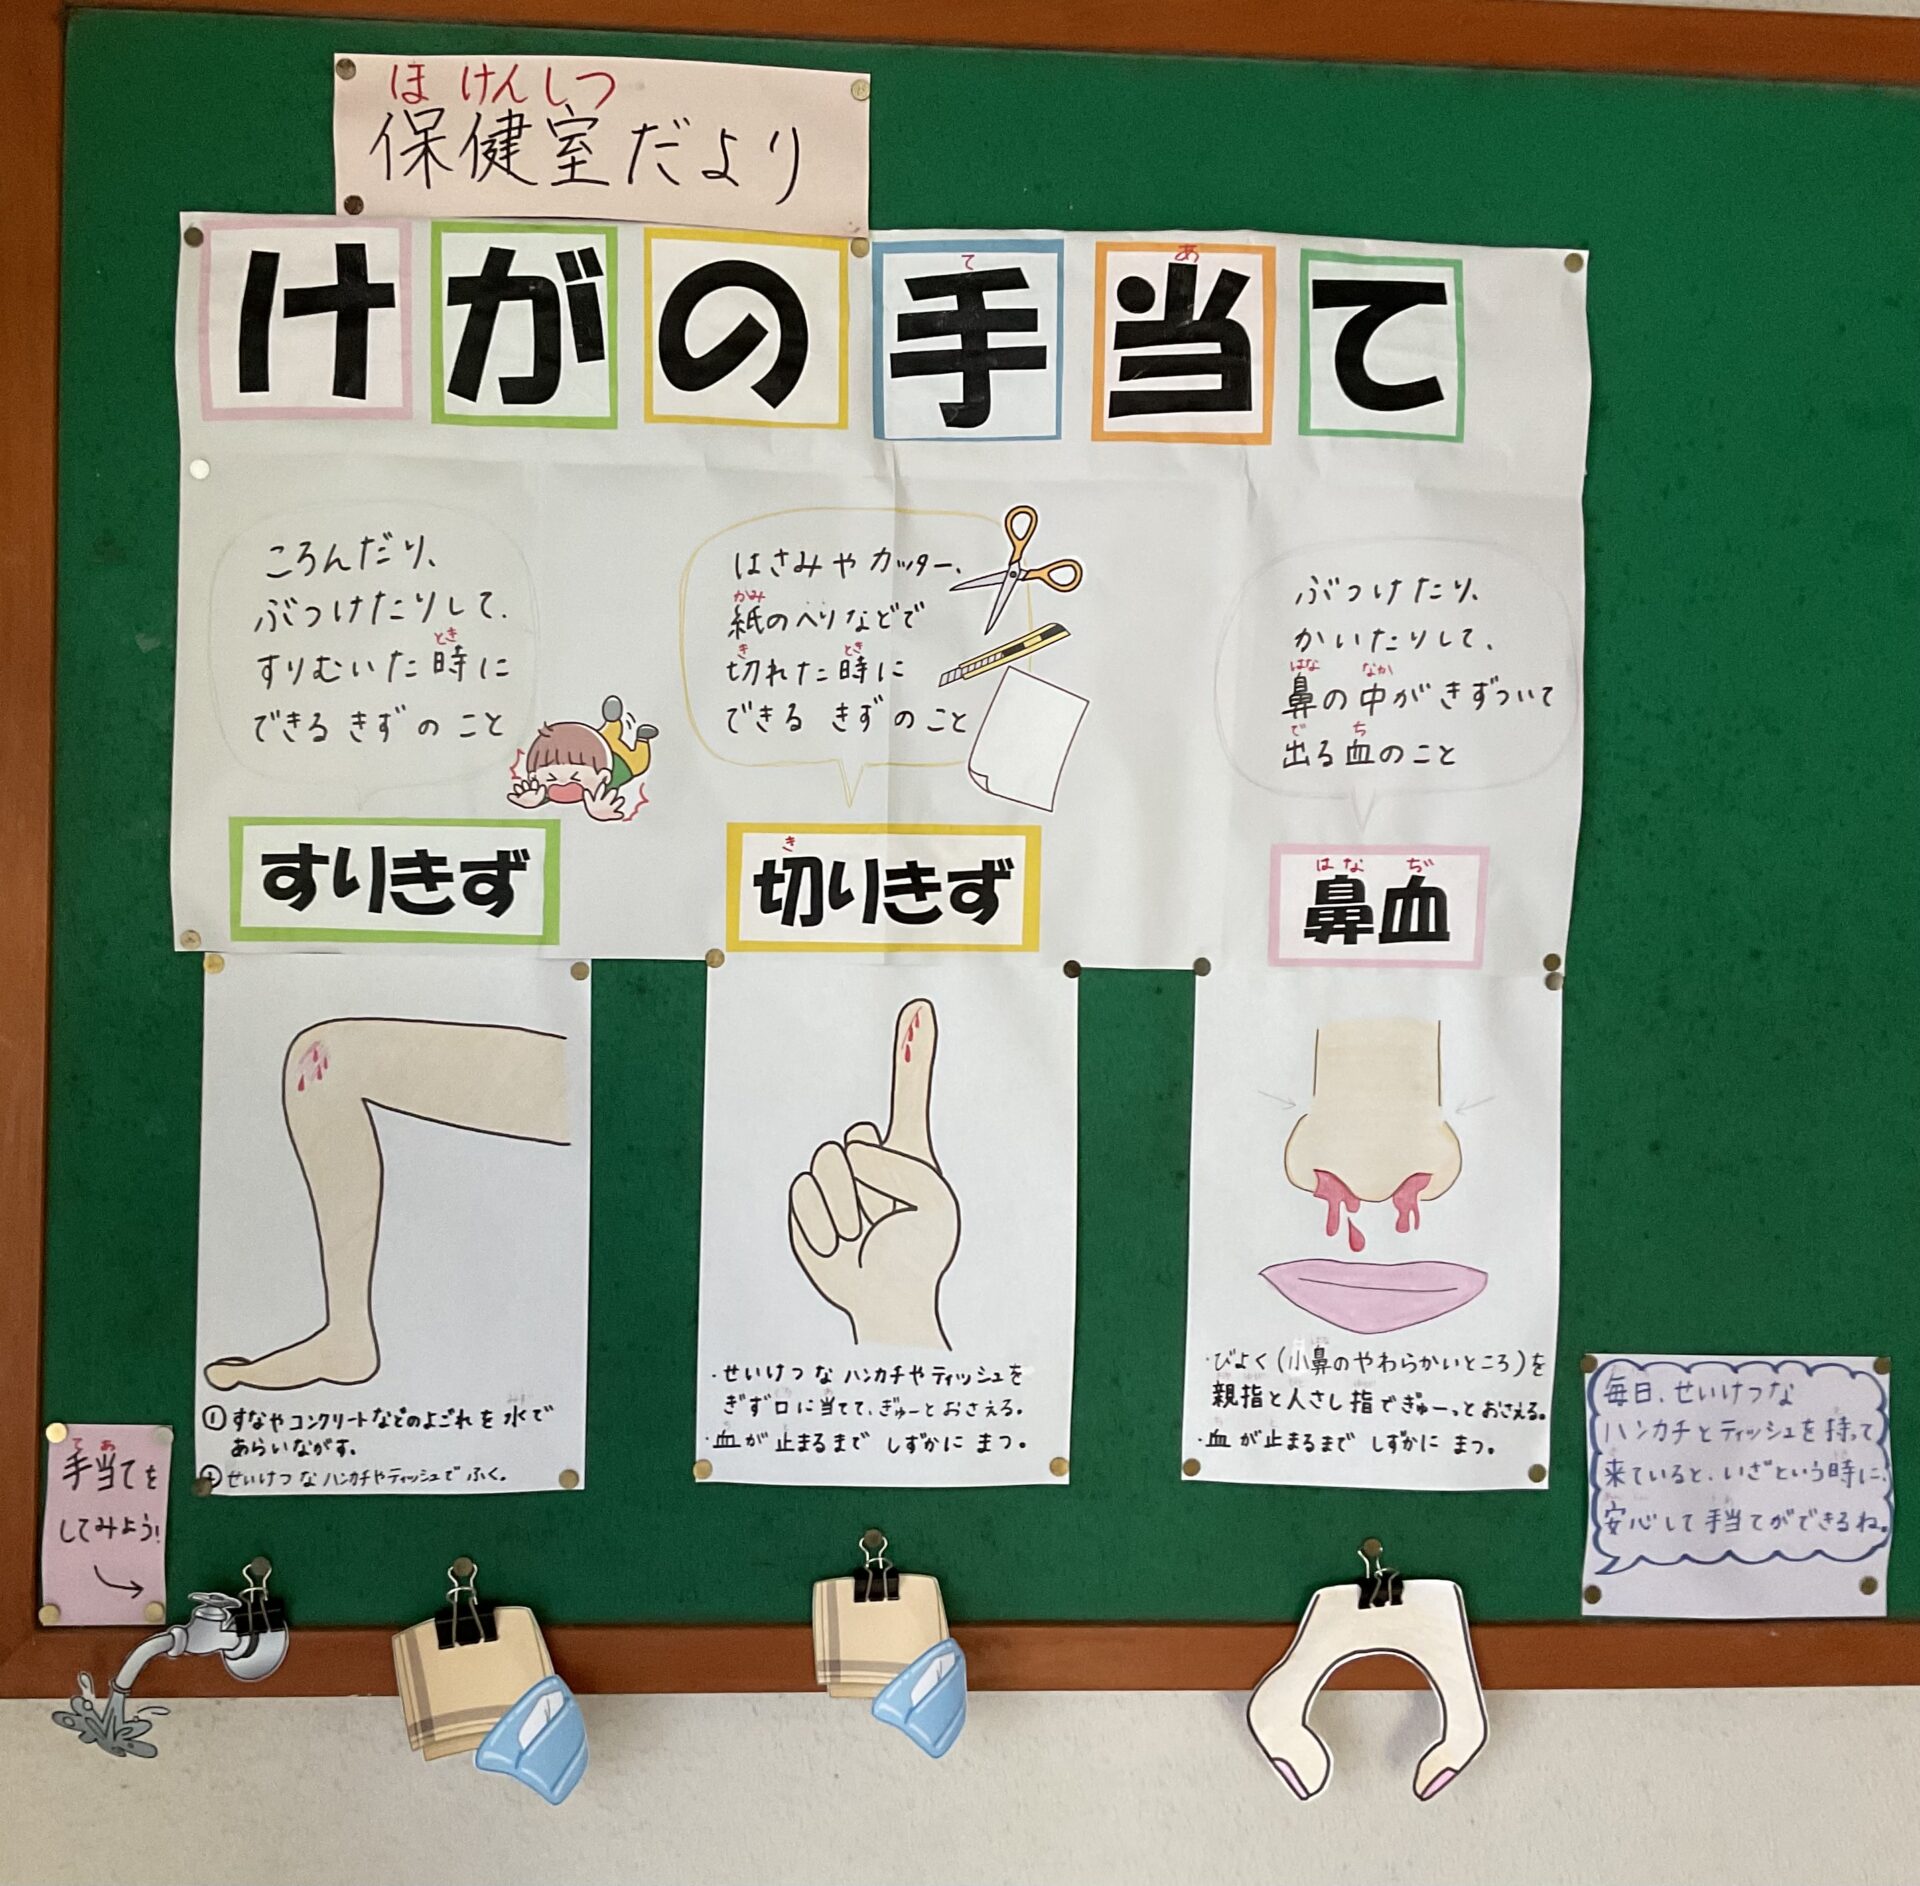 ほけんしつ
保健室だより
けがの手当て
て
あ
ころんだり、
ぶつけたりして、
とき
すりむいた時に
できるきずのこと
すりきず
①すなやコンクリートなどのよごれを水で
みず
あらいながす。
せいけつなハンカチやティッシュでふく。
はさみやカッター、
かみ
紙のへりなどで
き とき
切れた時に
できるきずのこと
き
切りきず
・せいけつなハンカチやティッシュを
きず口に当てて、ぎゅーとおさえる。
・血が止まるまでしずかにまつ。
ぶつけたり、
かいたりして、
はな なか
鼻の中がきずついて
で ち
出る血のこと
はな ぢ
鼻血
・びよく(小鼻のやわらかいところ)を
親指と人さし指でぎゅーっとおさえる。
・血が止まるまでしずかにまつ。
て あ
手当てを
してみよう!
毎日、せいけつな
ハンカチとティッシュを持って
来ていると、いざという時に、
安心して手当てができるね。